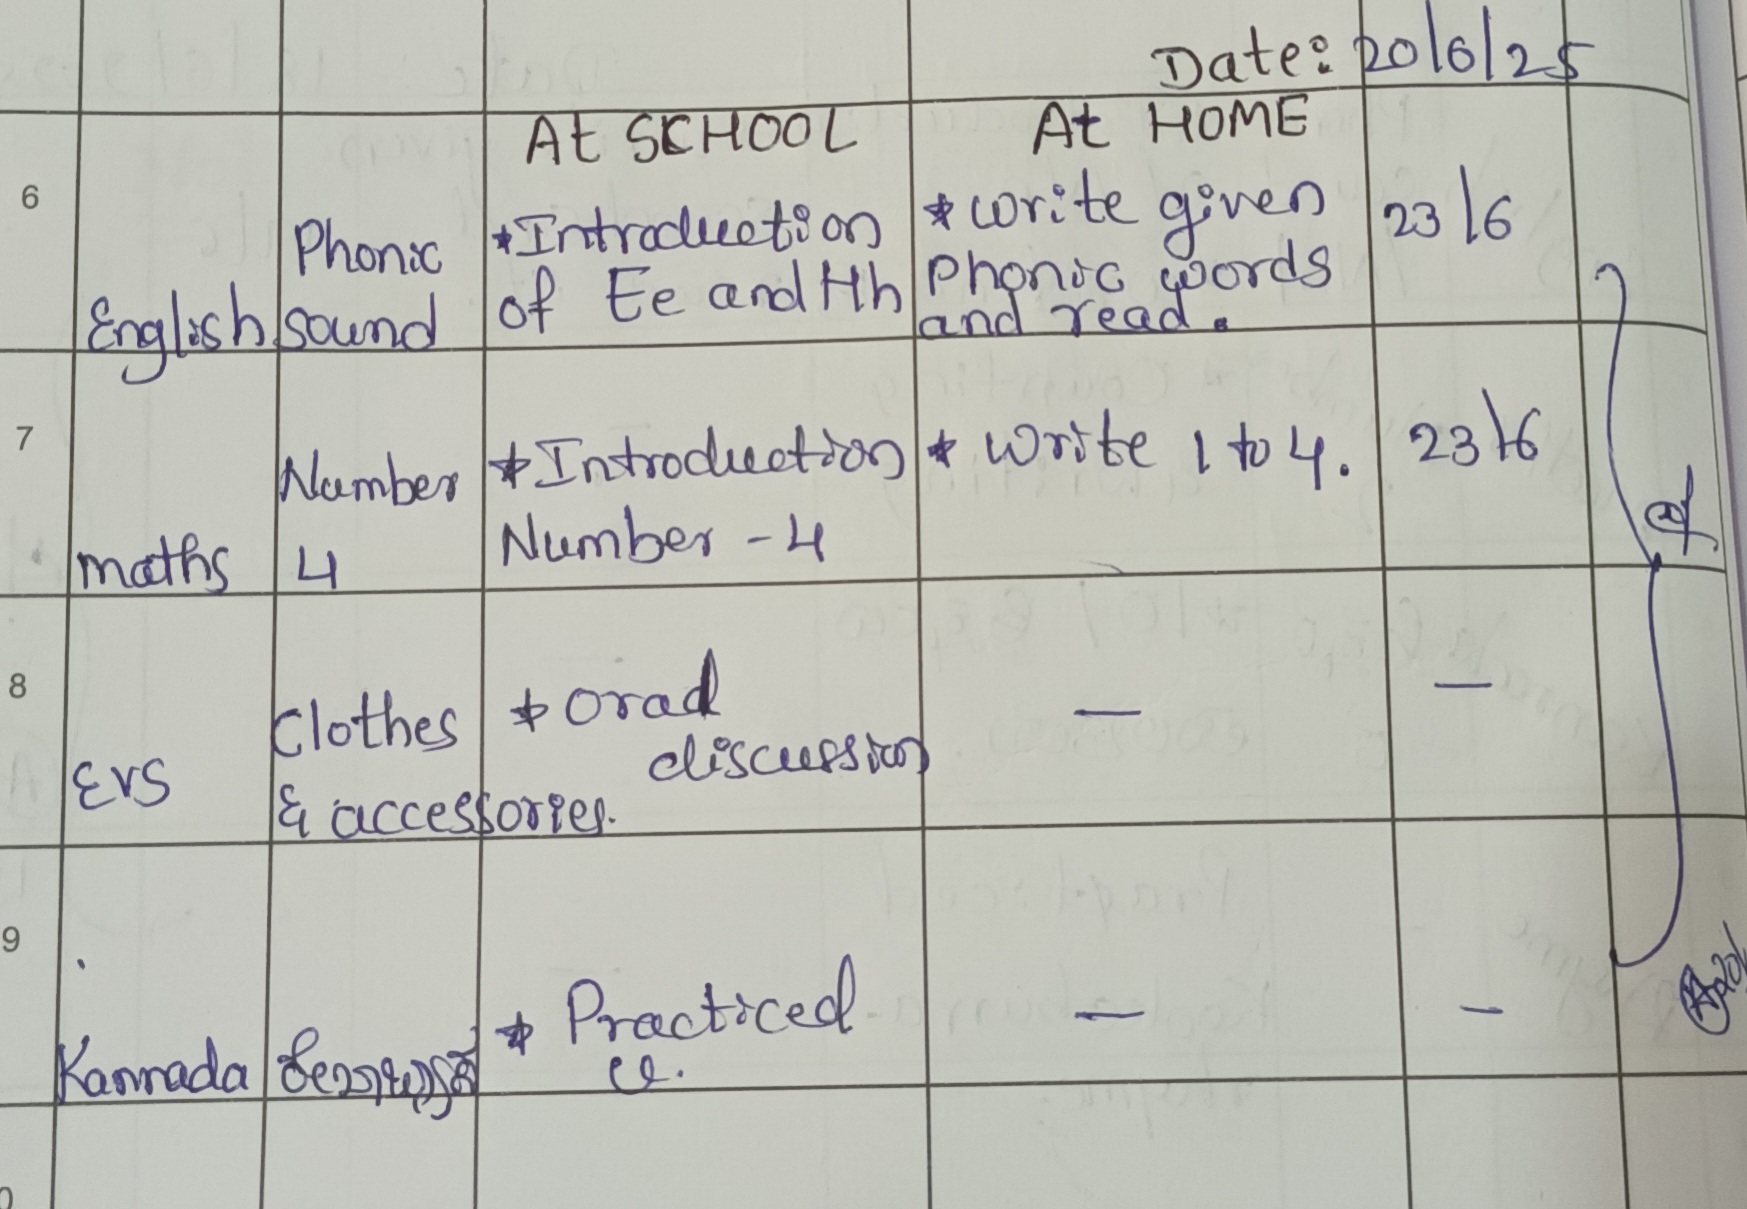 Date: 20/6/25
At SCHOOL
At HOME
6
English
Phonic
sound
*Introduction
of Ee and Hh
*write given
Phonic words
and read.
23/6
7
maths
Number
4
*Introduction
Number - 4
* write 1 to 4.
23/6
8
EVS
Clothes
& accessories.
* orad
discussion
—
—
9
Kannada
* Practiced
—
-